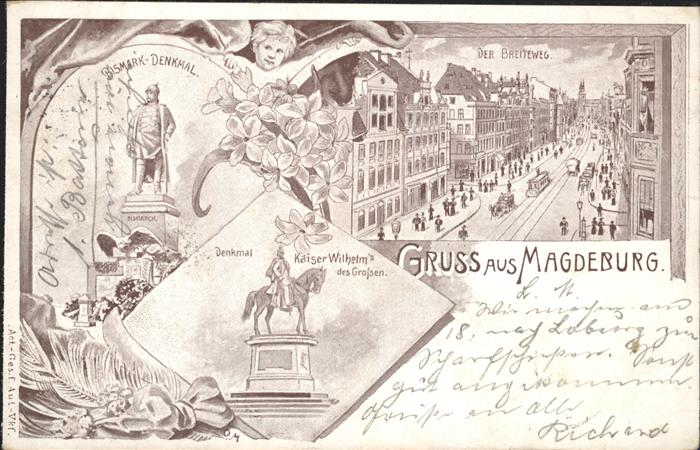 BISMARK-DENKMAL.
DER BREITEWEG.
BISMARCK.
Denkmal Kaiser Wilhelm's
des Großen.
GRUSS AUS MAGDEBURG.
L. M.
Wir machen am
18. nach Loburg zu
Scharfschießen. Sonst
gut angekommen
Grüße an alle
Richard
Adresse
Act.-Ges. f. Aut.-Vkf.